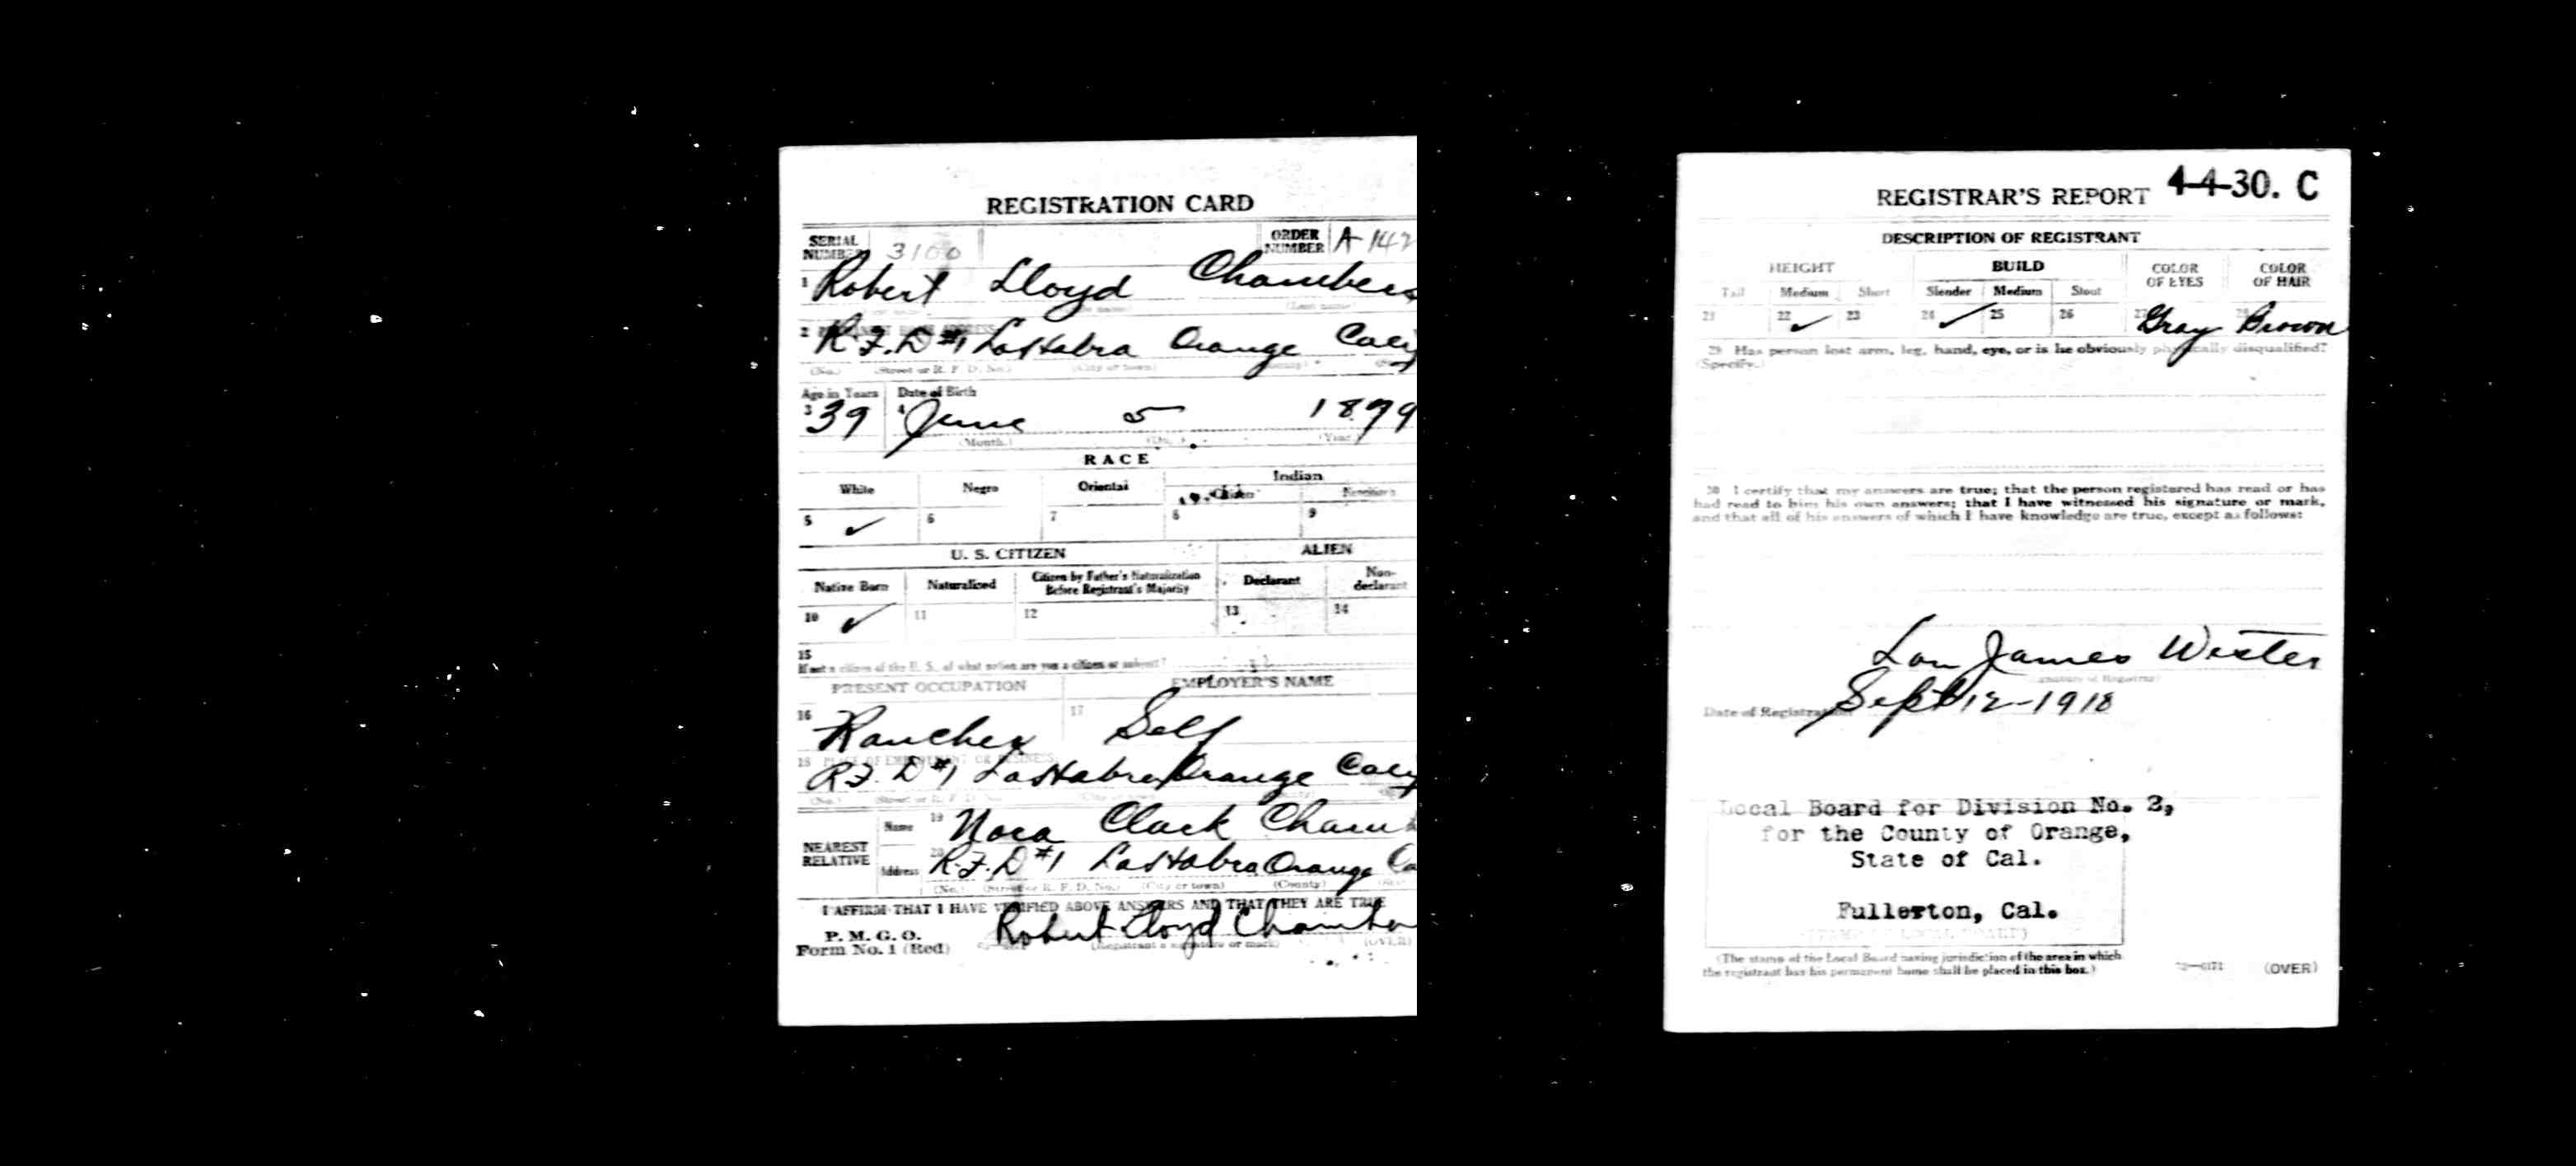 REGISTRATION CARD
SERIAL NUMBER 3100 ORDER NUMBER A 142
1 Robert Lloyd Chambers
2 PERMANENT HOME ADDRESS
R.F.D #1 La Habra Orange Calif
(No.) (Street or R. F. D. No.) (City or town) (County)
Age in Years Date of Birth
3 39 4 June 5 1879
(Month.) (Day.) (Year.)
RACE
White Negro Oriental Indian
Citizen Noncitizen
5 ✓ 6 7 8 9
U. S. CITIZEN ALIEN
Native Born Naturalized Citizen by Father's Naturalization Before Registrant's Majority Declarant Non-declarant
10 ✓ 11 12 13 14
15
If not a citizen of the U. S., of what nation are you a citizen or subject?
PRESENT OCCUPATION EMPLOYER'S NAME
16 Rancher 17 Self
18 PLACE OF EMPLOYMENT OR BUSINESS
R.F.D #1 La Habra Orange Calif
(No.) (Street or R. F. D. No.) (City or town)
NEAREST RELATIVE Name 19 Nora Clark Cham
Address 20 R.F.D #1 La Habra Orange Ca
(No.) (Street or R. F. D. No.) (City or town) (County)
I AFFIRM THAT I HAVE VERIFIED ABOVE ANSWERS AND THAT THEY ARE TRUE
P. M. G. O.
Form No. 1 (Red) Robert Lloyd Chambe
(Registrant's signature or mark) (OVER)
REGISTRAR'S REPORT 4-4-30. C
DESCRIPTION OF REGISTRANT
HEIGHT BUILD COLOR OF EYES COLOR OF HAIR
Tall Medium Short Slender Medium Stout
21 22 ✓ 23 24 ✓ 25 26 27 Gray 28 Brown
29 Has person lost arm, leg, hand, eye, or is he obviously physically disqualified?
(Specify.)
30 I certify that my answers are true; that the person registered has read or has
had read to him his own answers; that I have witnessed his signature or mark,
and that all of his answers of which I have knowledge are true, except as follows:
Lon James Wester
(Signature of Registrar)
Date of Registration Sept 12-1918
Local Board for Division No. 2,
for the County of Orange,
State of Cal.
Fullerton, Cal.
(STAMP OF LOCAL BOARD)
(The stamp of the Local Board having jurisdiction of the area in which
the registrant has his permanent home shall be placed in this box.)
(OVER)